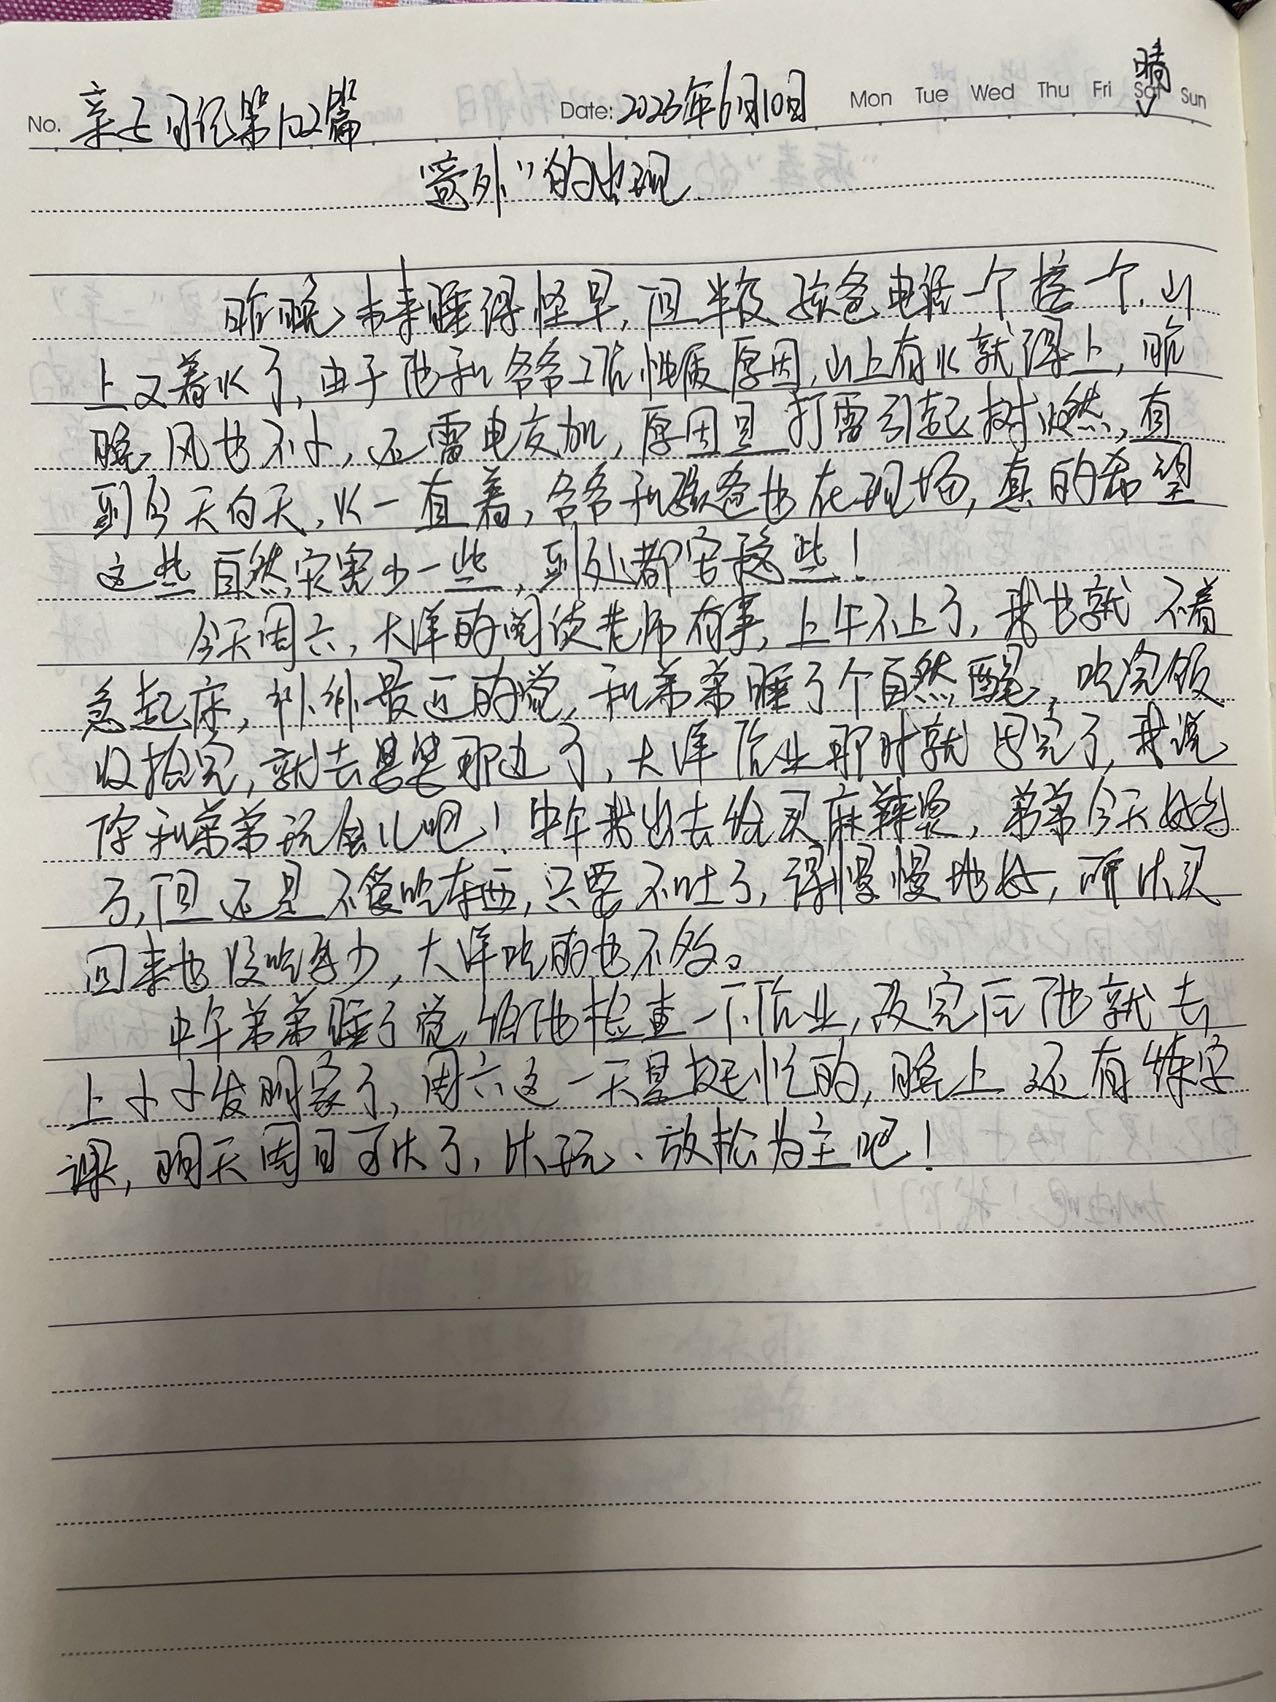 No. 亲子日记第122篇 Date: 2023年6月10日 Mon Tue Wed Thu Fri Sat Sun 晴
"意外"的出现
昨晚本来睡得怪早,但半夜孩爸电话一个接一个,山
上又着火了,由于他和爷爷工作性质原因,山上有火就得上,昨
晚风也不小,还雷电交加,原因是打雷引起树燃,直
到今天白天,火一直着,爷爷和孩爸也在现场,真的希望
这些自然灾害少一些,到处都安稳些!
今天周六,大洋的阅读老师有事,上午不上了,我也就不着
急起床,补补最近的觉,和弟弟睡了个自然醒,吃完饭
收拾完,就去婆婆那边了,大洋作业那时就写完了,我说
你和弟弟玩会儿吧!中午我出去给买麻辣烫,弟弟今天好多
了,但还是不爱吃东西,只要不吐了,得慢慢地好,所以买
回来也没吃多少,大洋吃的也不多。
中午弟弟睡了觉,给他检查一下作业,改完后他就去
上小小发明家了,周六这一天是挺忙的,晚上还有练字
课,明天周日可以了,以玩、放松为主吧!